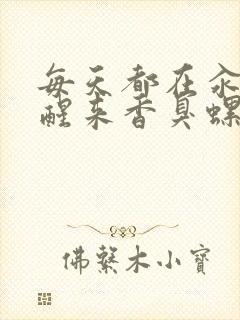 每天都在汆
醒来香臭螺
佛系木小寳